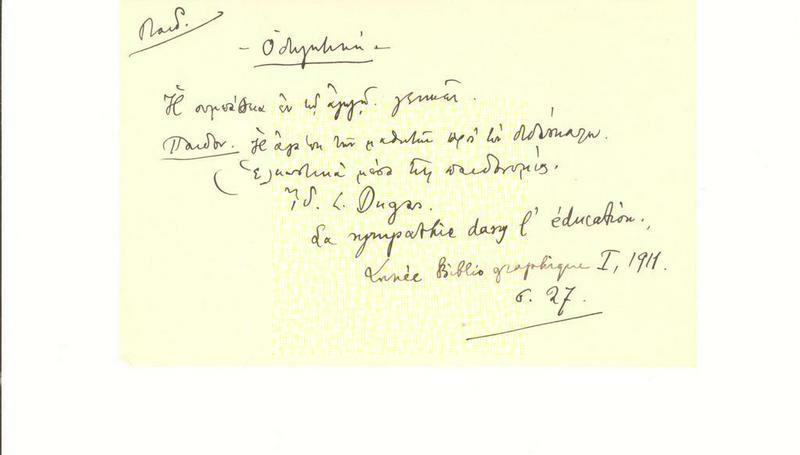 Παιδ.
- Ὁδηγητική -
Ἡ συμπάθεια ἐν τῇ ἀγωγῇ. γενικῶς.
Παιδον. Ἡ ἀγάπη τῶν μαθητῶν πρὸς τὸν διδάσκαλον.
( Ἑλκυστικὰ μέσα τῆς παιδονομίας.
Ἰδ. L. Dugas.
La sympathie dans l' éducation.,
Année Bibliographique I, 1911.
σ. 27.